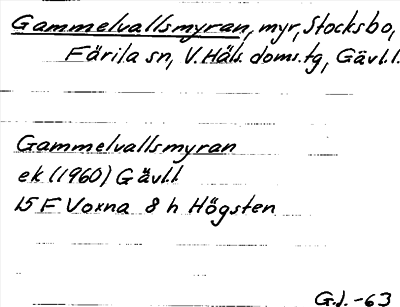 Gammelvallsmyran, myr, Stocksbo,
Färila sn, V. Häls. doms.tg, Gävl.l.
Gammelvallsmyran
ek (1960) Gävl.l
15 F Voxna 8 h Högsten
G.J. -63